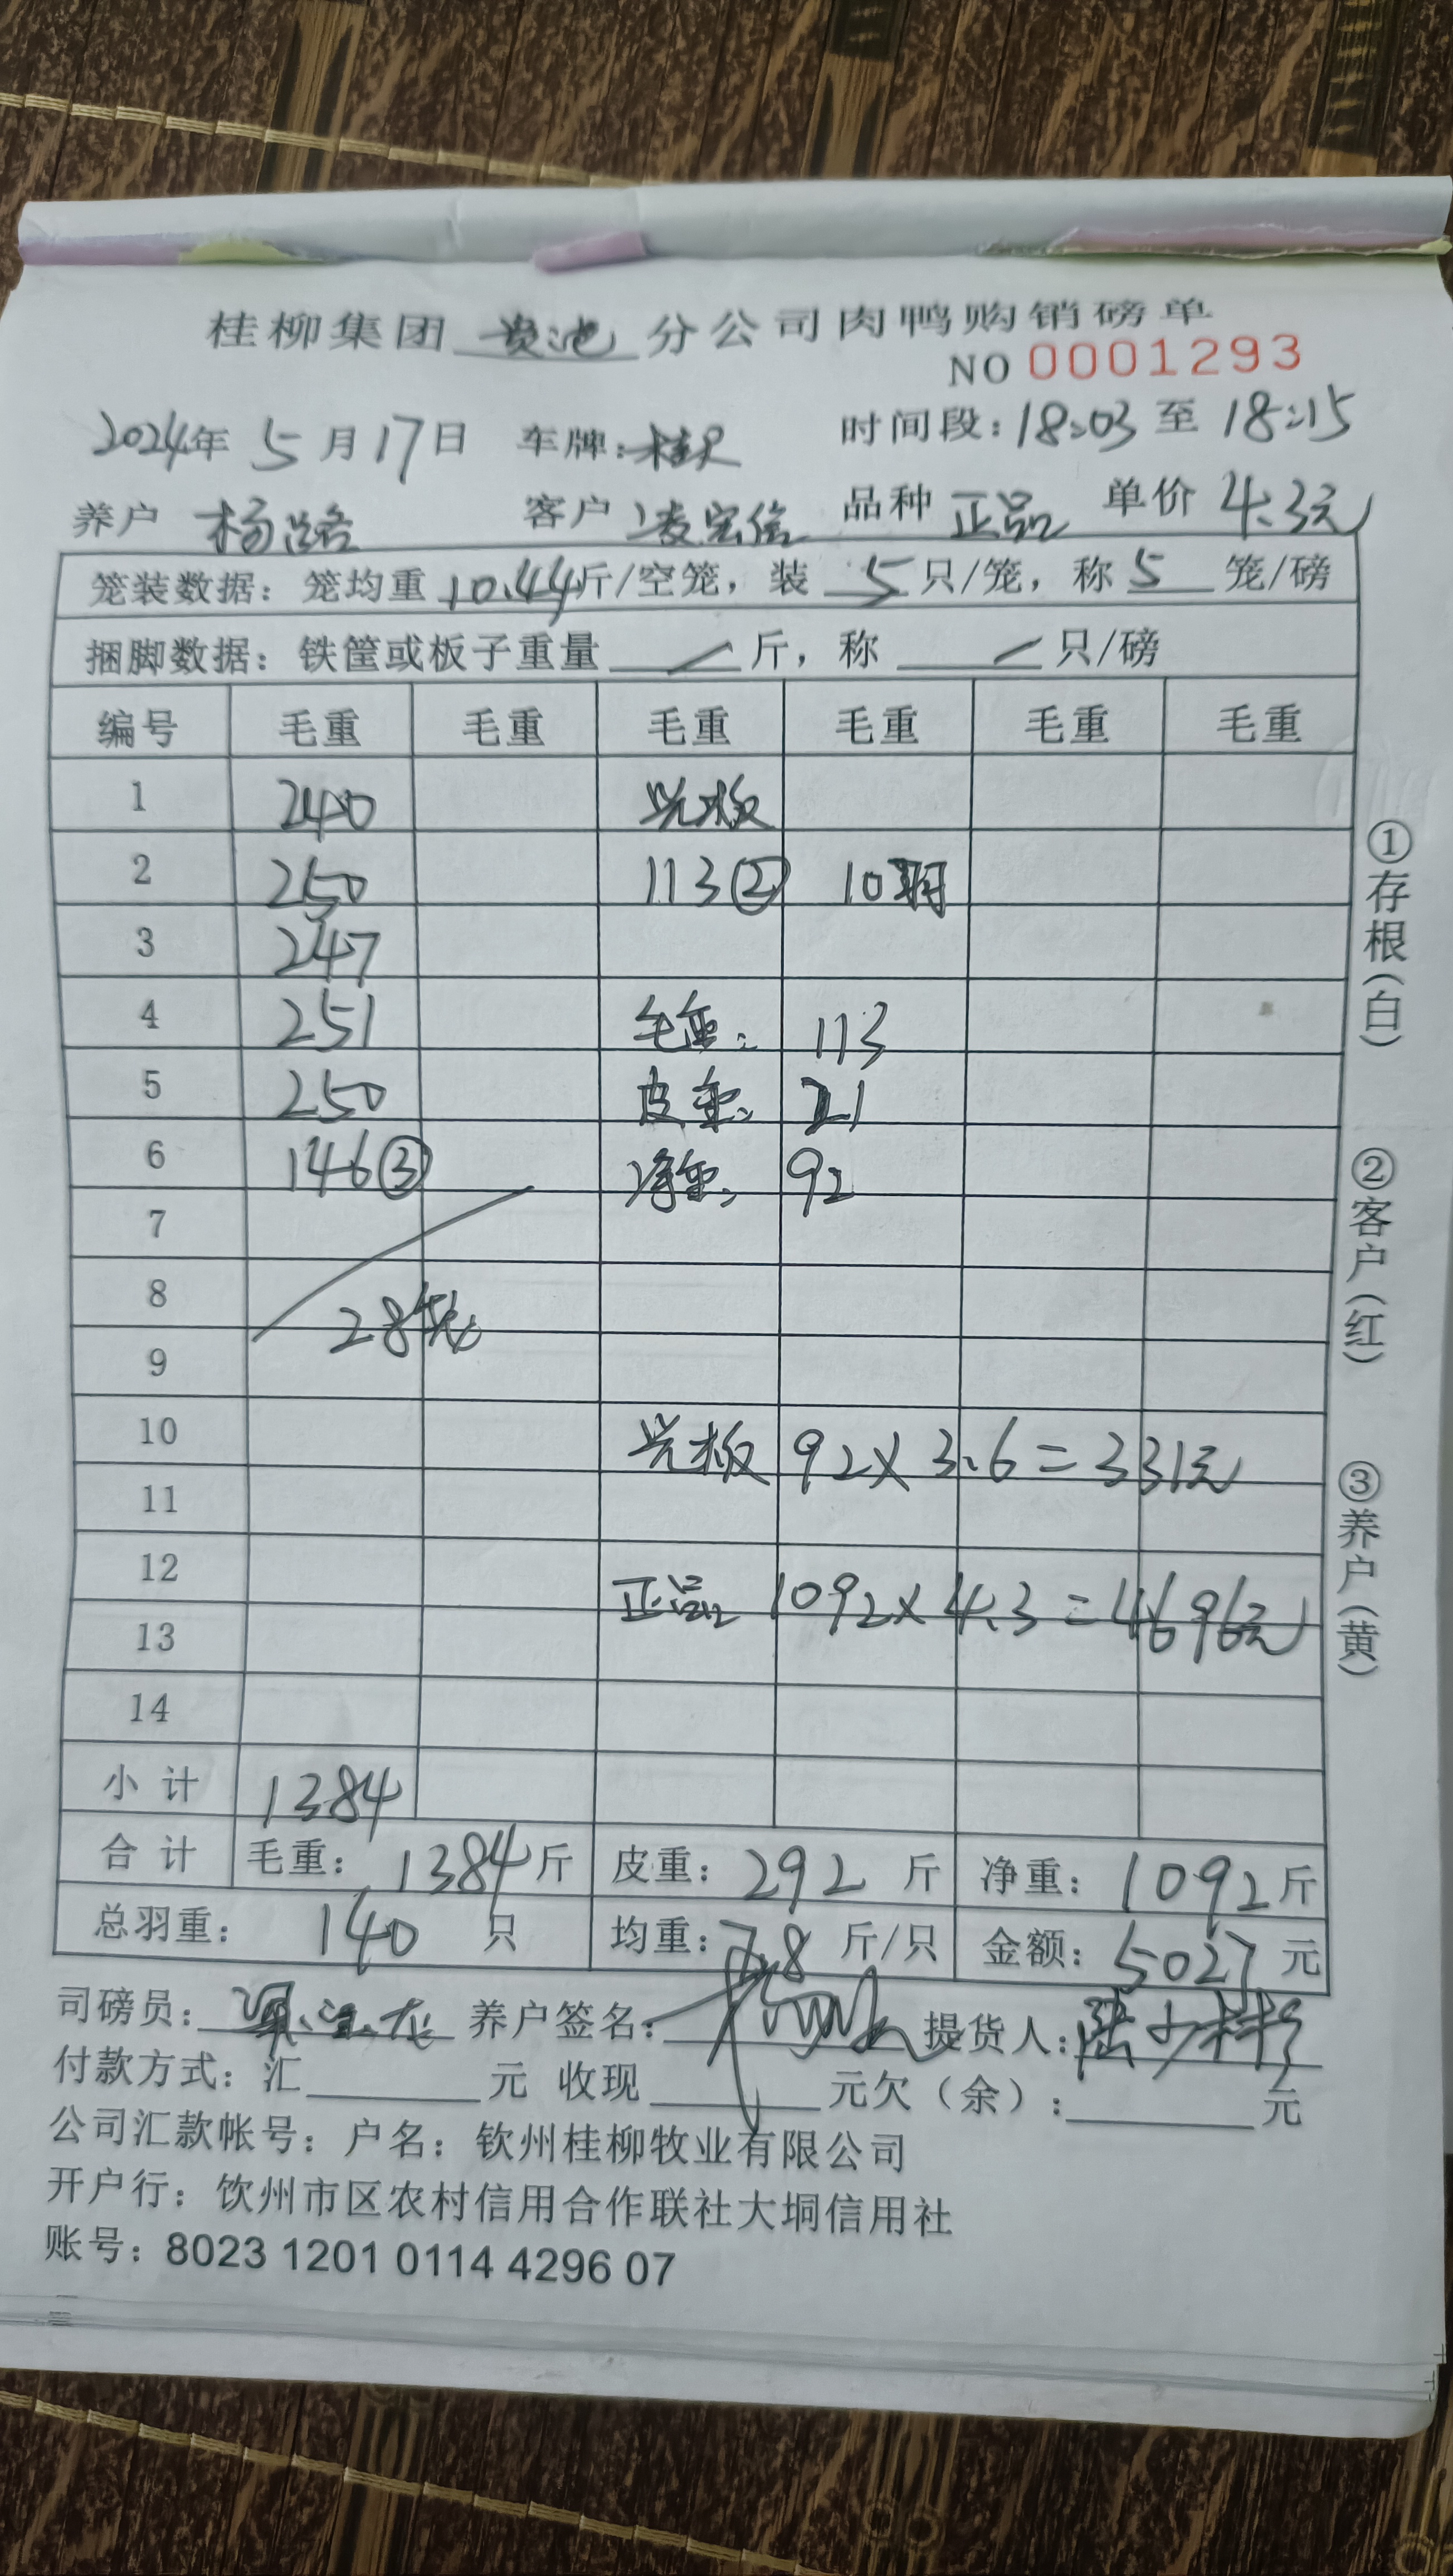 桂柳集团 贵池 分公司肉鸭购销磅单
NO 0001293
2024年 5月17日 车牌: 时间段:18:03 至 18:15
养户 杨路 客户 凌宏信 品种 正品 单价 4.3元
笼装数据:笼均重 10.44斤/空笼,装 5 只/笼,称 5 笼/磅
捆脚数据:铁筐或板子重量 / 斤,称 / 只/磅
编号 毛重 毛重 毛重 毛重 毛重 毛重
1 240 光板
2 250 113② 10羽
3 247
4 251 毛重: 113
5 250 皮重: 21
6 146③ 净重: 92
7
8 28笼
9
10 光板 92×3.6=331元
11
12 正品 1092×4.3=4696元
13
14
小计 1384
合计 毛重: 1384斤 皮重: 292 斤 净重: 1092斤
总羽重: 140 只 均重: 7.8 斤/只 金额: 5027 元
司磅员: 养户签名: 提货人:
付款方式:汇 元 收现 元欠(余): 元
公司汇款帐号:户名:钦州桂柳牧业有限公司
开户行:钦州市区农村信用合作联社大垌信用社
账号:8023 1201 0114 4296 07
①存根(白)
②客户(红)
③养户(黄)